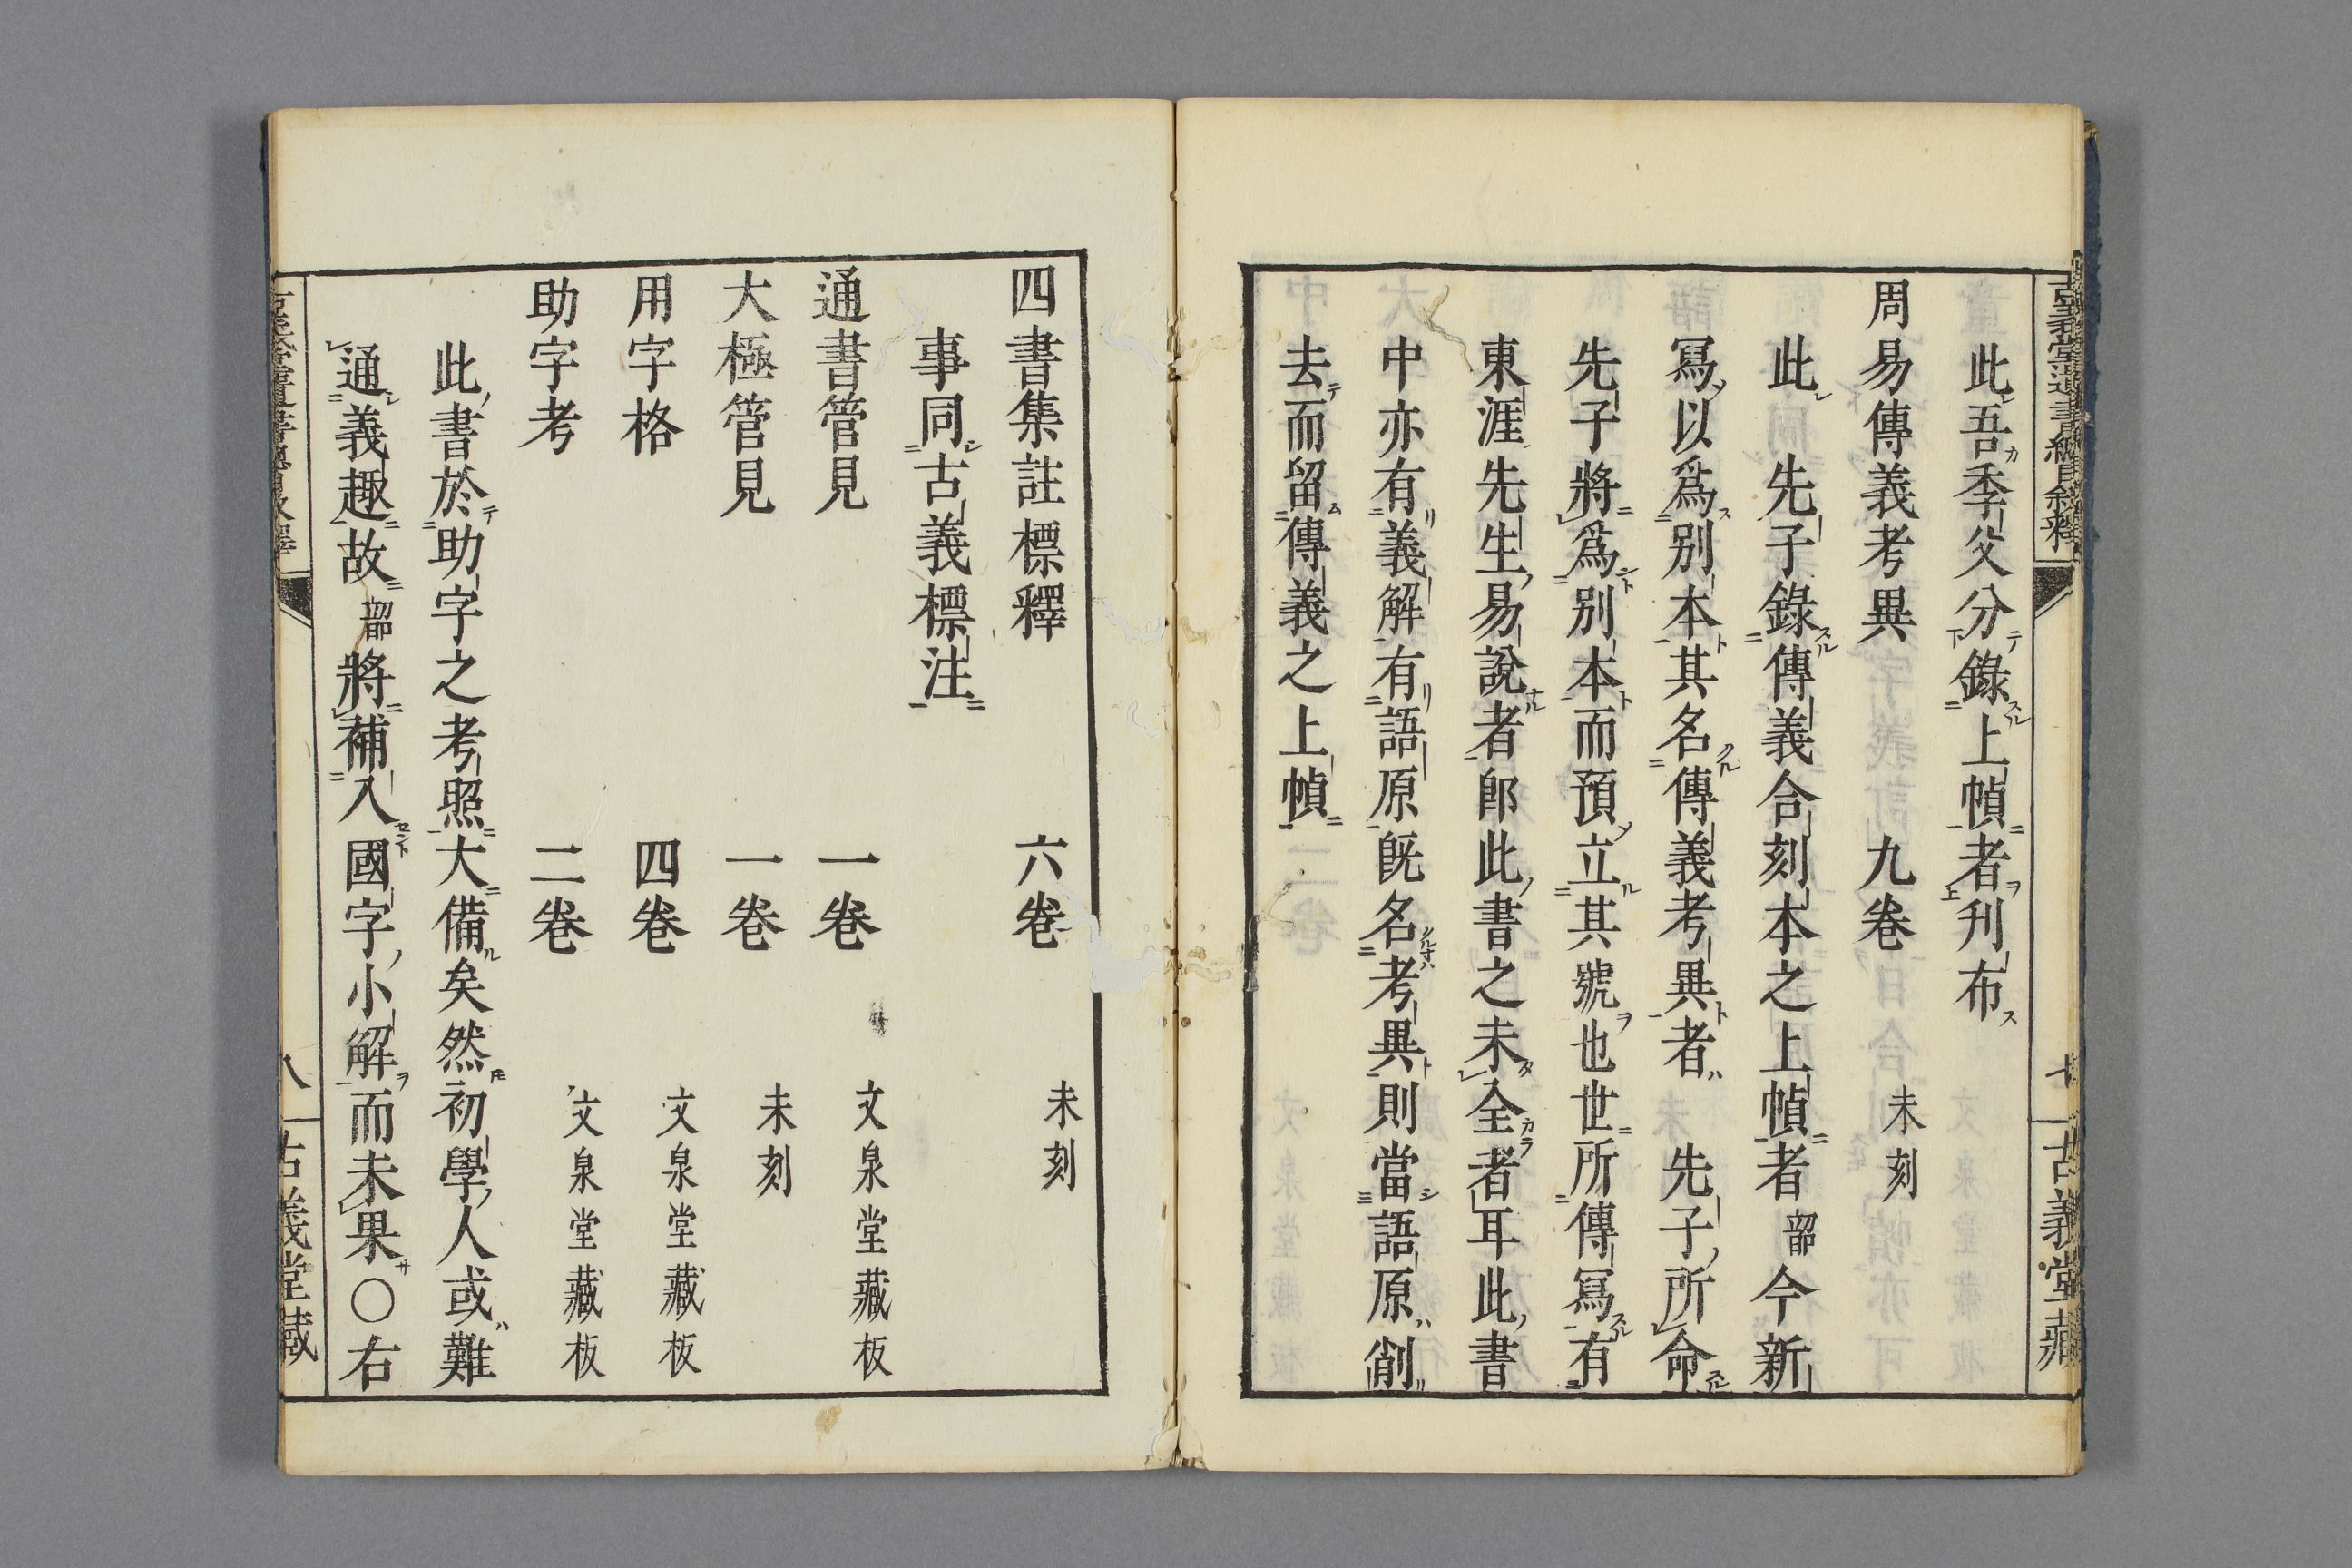 此吾季父分錄上幀者刋布
周易傳義考異　九卷　未刻
此　先子錄傳義合刻本之上幀者韶今新
冩以爲別本其名傳義考異者　先子所命
先子將爲別本而預立其號也世所傳冩有
東涯先生易說者卽此書之未全者耳此書
中亦有義解有語原旣名考異則當語原削
去而留傳義之上幀
古義堂遺書總目叙釋　七　古義堂藏
四書集註標釋　六卷　未刻
事同古義標注
通書管見　一卷　文泉堂藏板
大極管見　一卷　未刻
用字格　四卷　文泉堂藏板
助字考　二卷　文泉堂藏板
此書於助字之考照大備矣然初學人或難
通義趣故韶將補入國字小解而未果〇右
八　古義堂藏